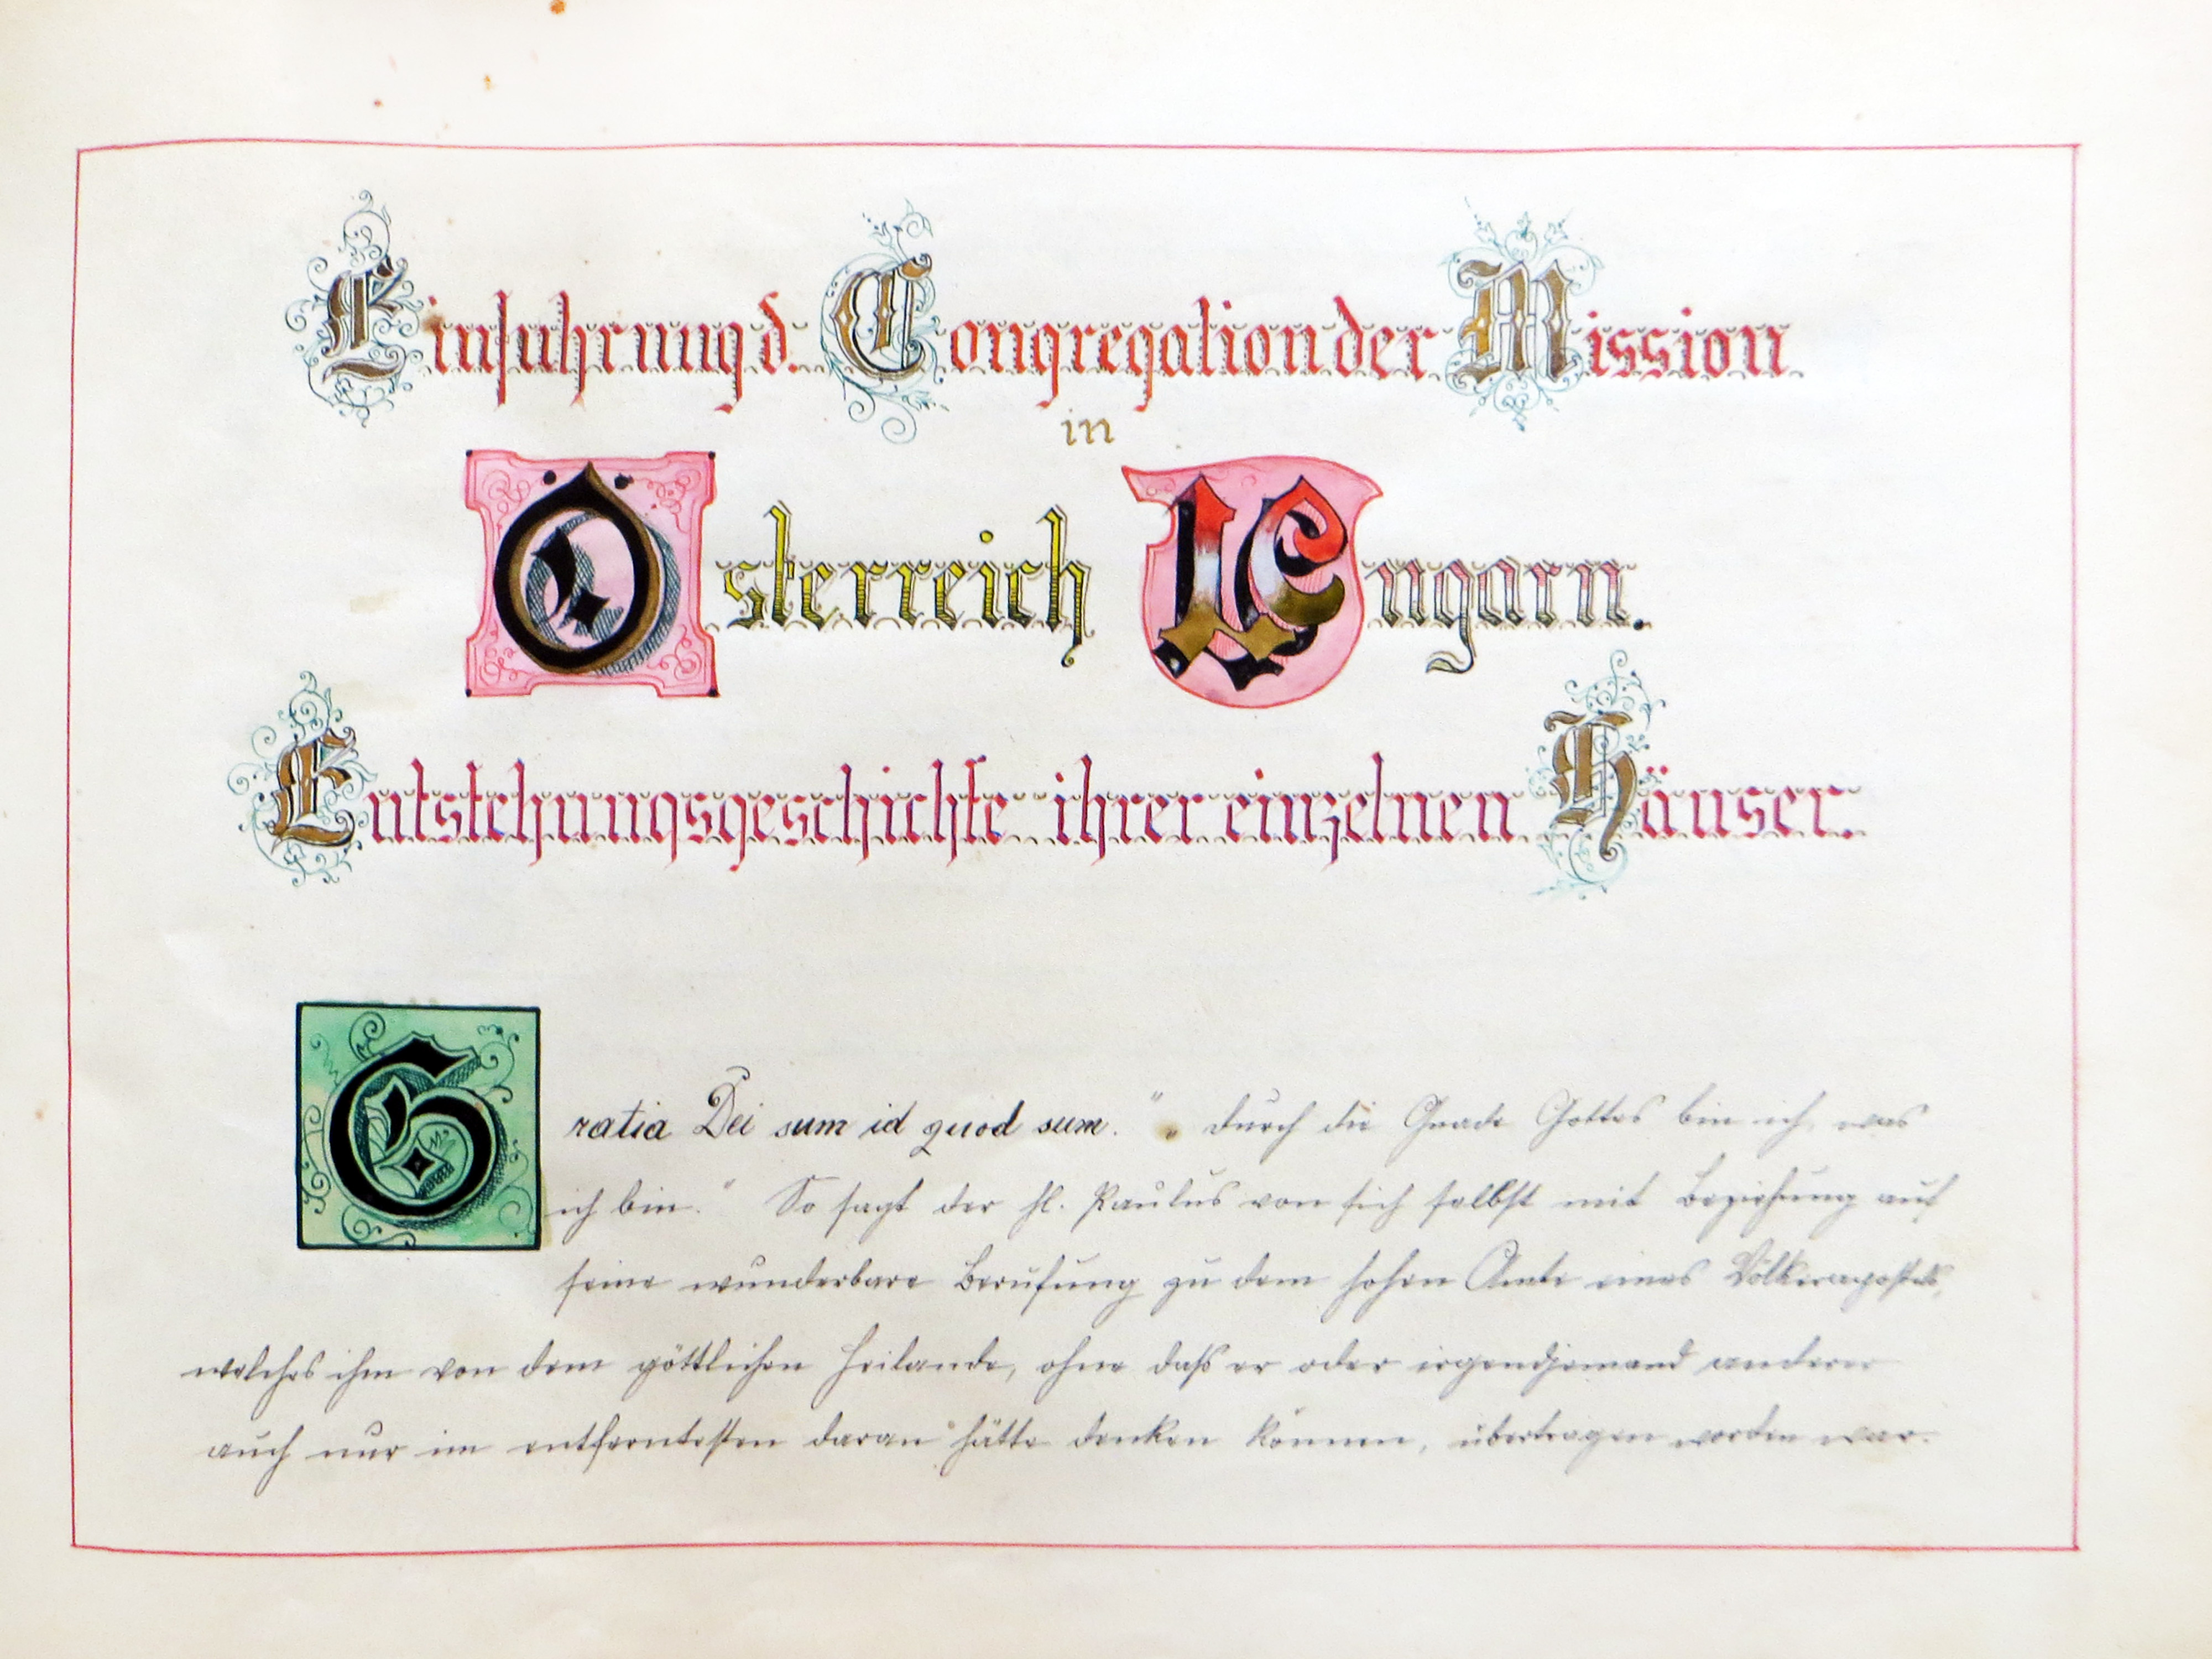 Einfuhrung d. Congregation der Mission
in
Österreich Ungarn.
Entstehungsgeschichte ihrer einzelnen Häuser.
Gratia Dei sum id quod sum." „Durch die Gnade Gottes bin ich, was
ich bin." So sagt der hl. Paulus von sich selbst mit Beziehung auf
seine wunderbare Berufung zu dem hohen Amte eines Völkerapostels,
welches ihm von dem göttlichen Heilande, ohne daß er oder irgendjemand anderer
auch nur im entferntesten daran hätte denken können, übertragen worden war.